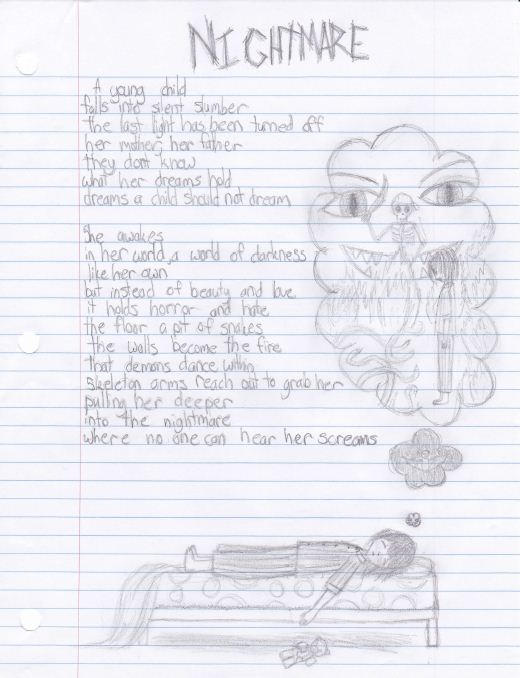 NIGHTMARE
A young child
falls into silent slumber
the last light has been turned off
her mother, her father
they dont know
what her dreams hold
dreams a child should not dream
She awakes
in her world, a world of darkness
like her own
but instead of beauty and love
it holds horror and hate
the floor a pit of snakes
the walls become the fire
that demons dance within
skeleton arms reach out to grab her
pulling her deeper
into the nightmare
where no one can hear her screams